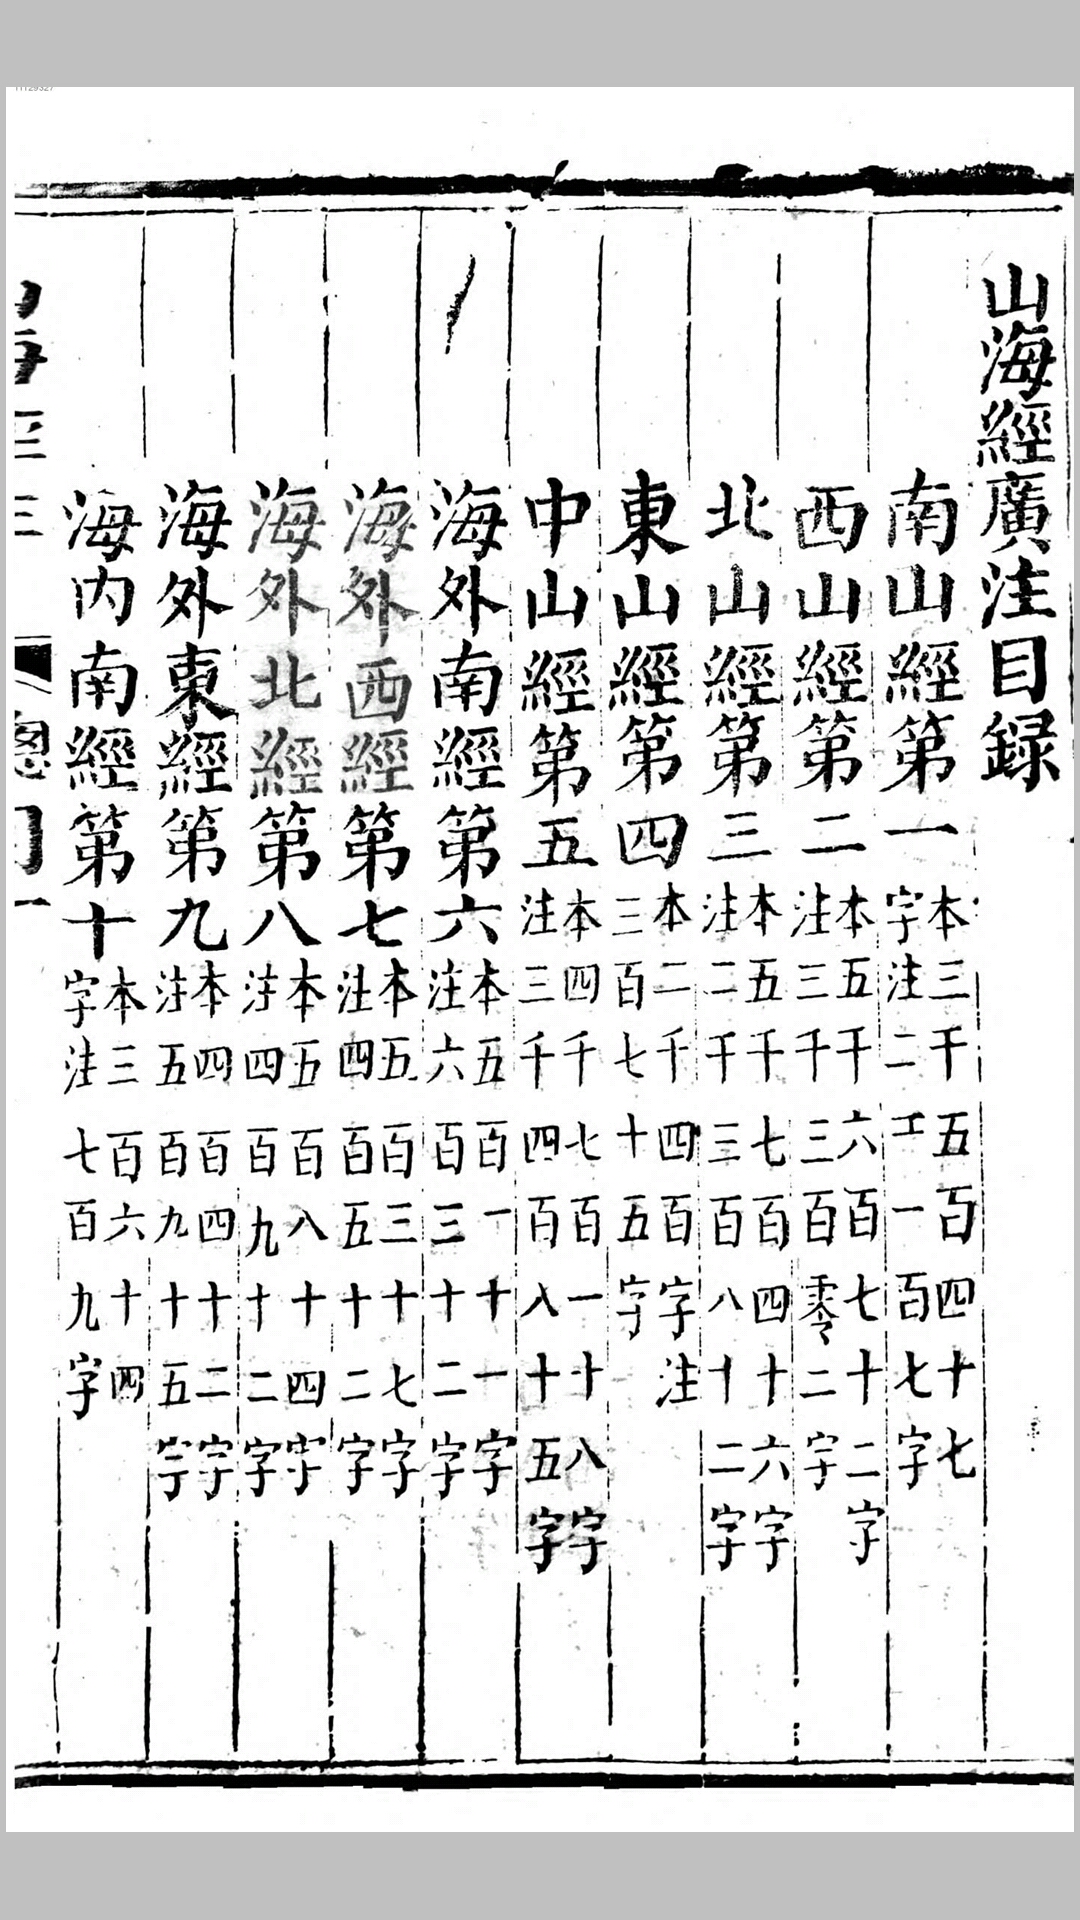 山海經廣注目録
南山經第一 本三千五百四十七字注二千一百七字
西山經第二 本五千六百七十二字注三千三百零二字
北山經第三 本五千七百四十六字注二千三百八十二字
東山經第四 本二千四百字注三百七十五字
中山經第五 本四千七百一十八字注三千四百八十五字
海外南經第六 本五百一十一字注六百三十二字
海外西經第七 本五百三十七字注四百五十二字
海外北經第八 本五百八十四字注四百九十二字
海外東經第九 本四百四十二字注五百九十五字
海内南經第十 本三百六十四字注七百九字